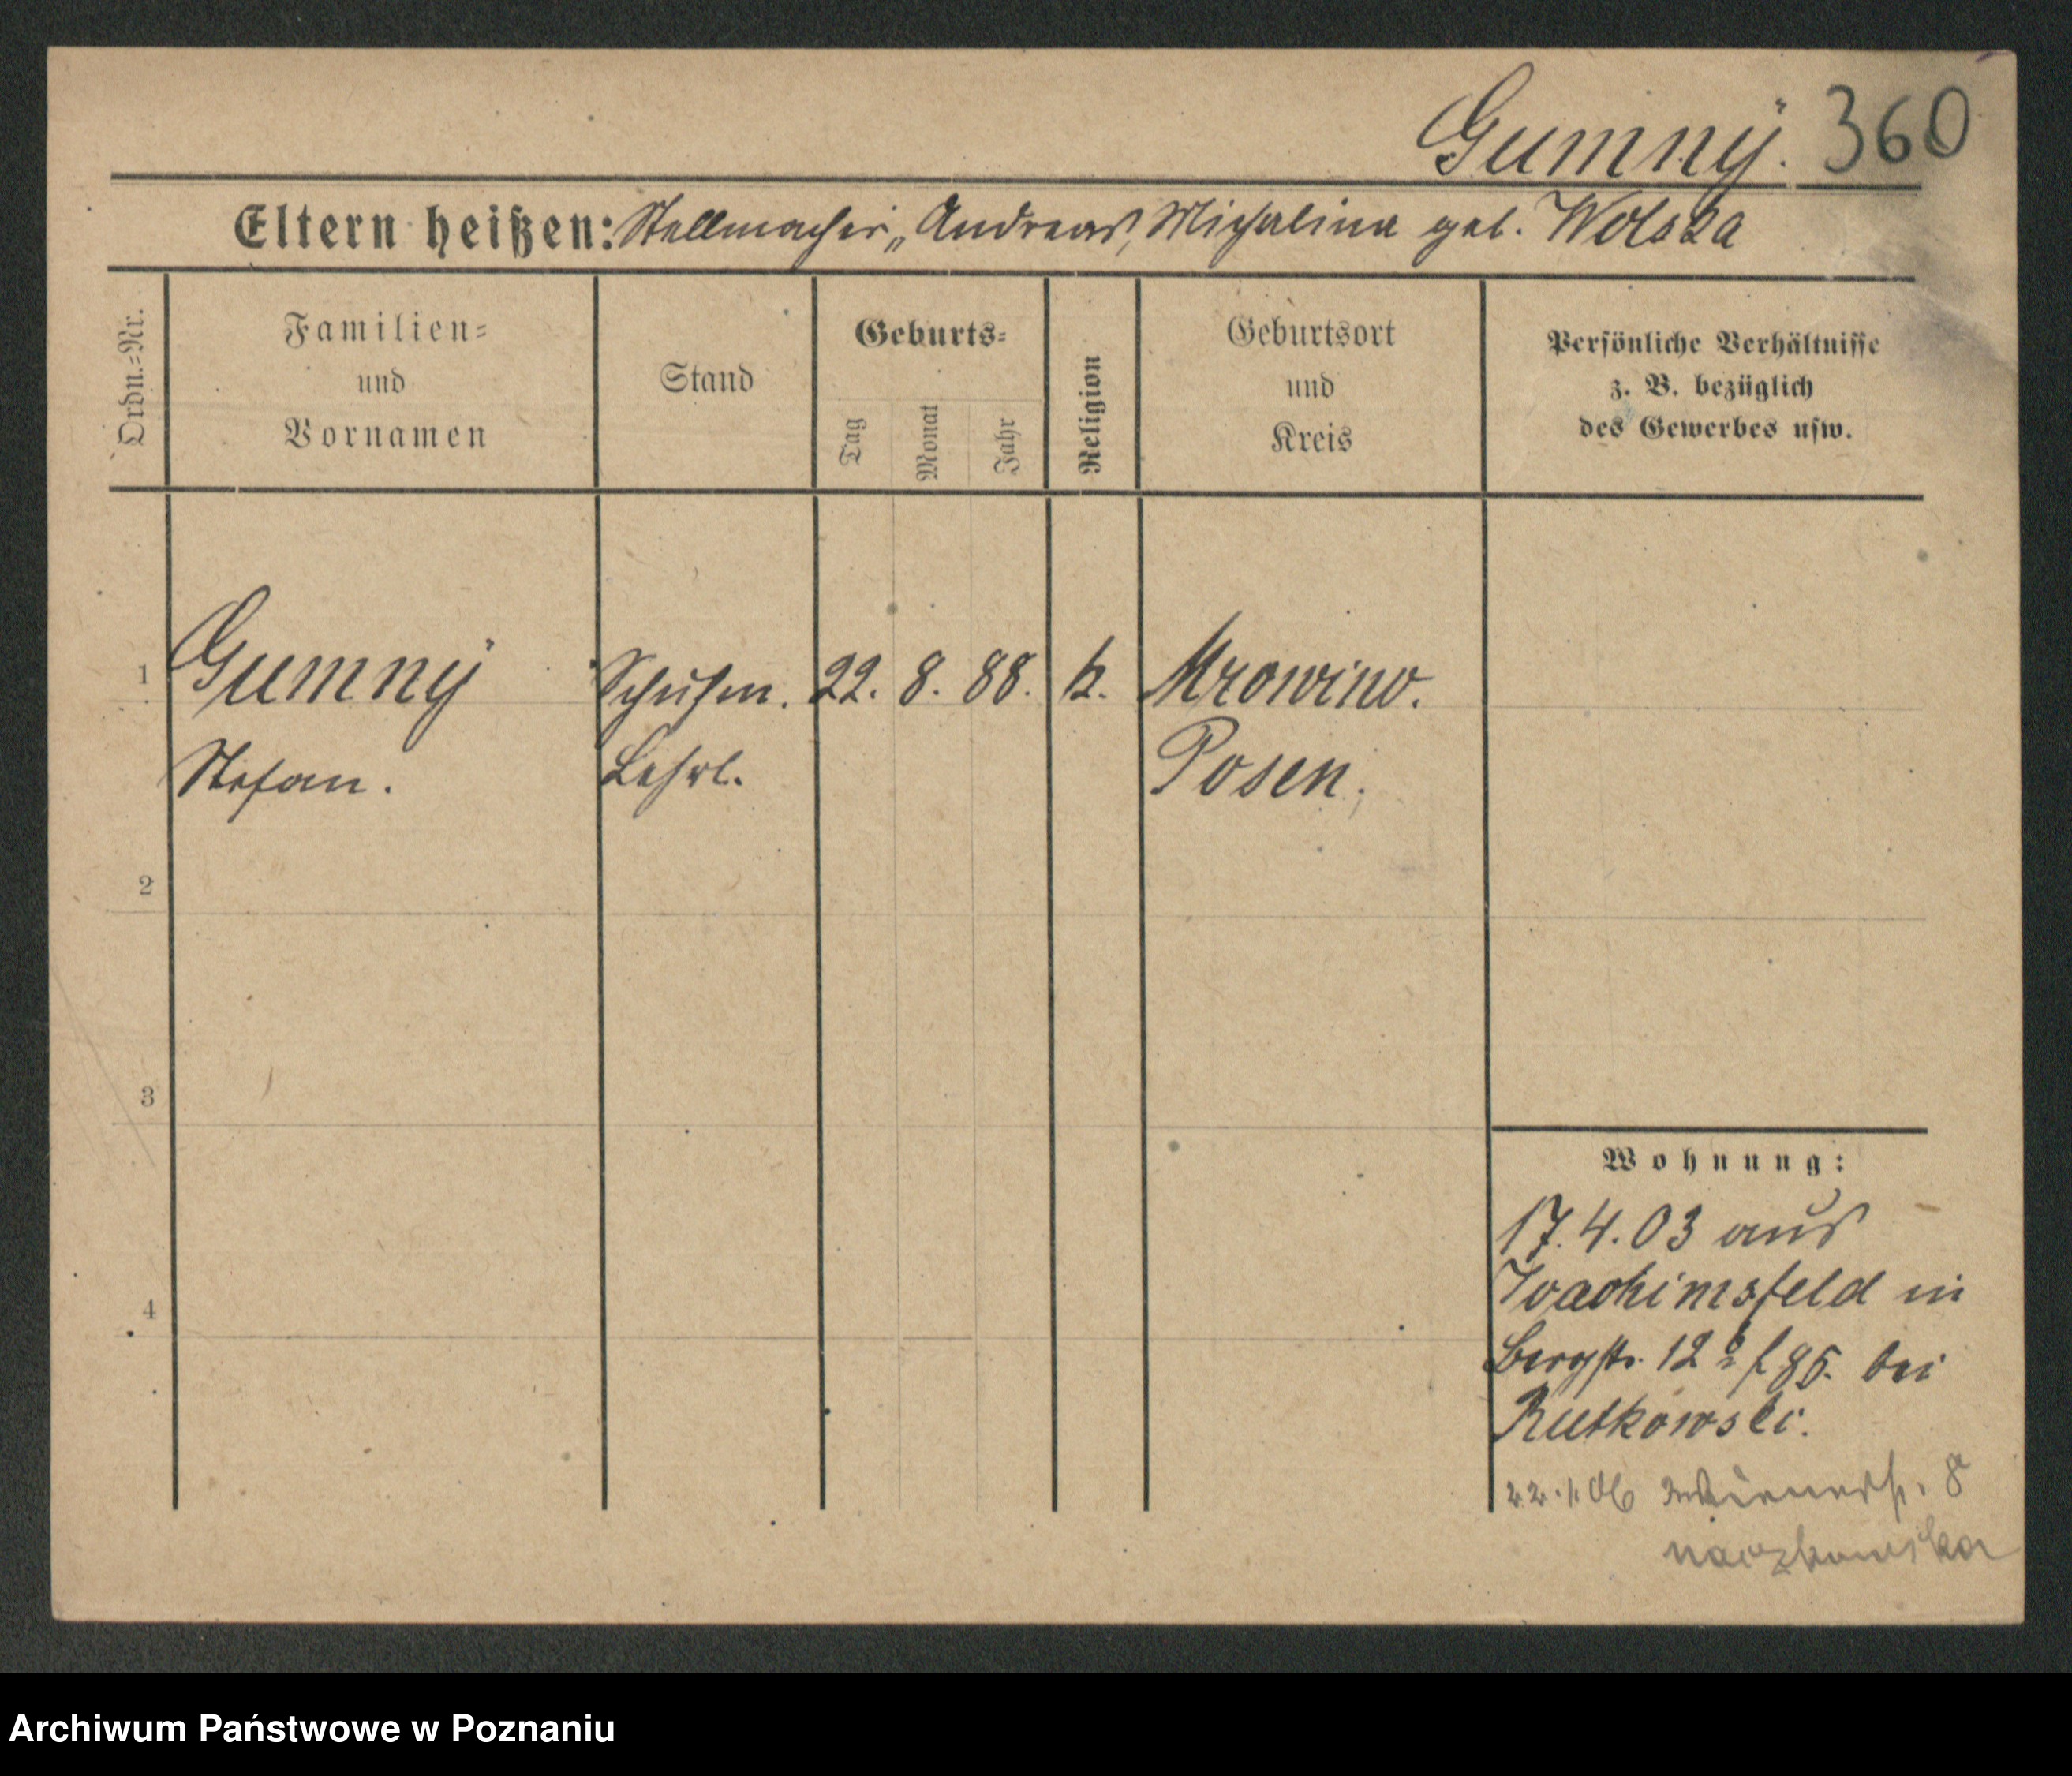 Gumnÿ. 360
Eltern heißen: Stellmacher „Andreas, Michalina geb. Wolska
Ordn.=Nr.
Familien=
und
Vornamen
Stand
Geburts=
Tag
Monat
Jahr
Religion
Geburtsort
und
Kreis
Persönliche Verhältnisse
z. B. bezüglich
des Gewerbes usw.
1 Gumnÿ Schuhm. 22. 8. 88. k. Mrowino.
Stefan. Lehrl. Posen.
2
3
4
Wohnung:
17.4.03 aus
Joachimsfeld in
Bergstr. 12 bei
Rutkowski.
22.1.06
Archiwum Państwowe w Poznaniu